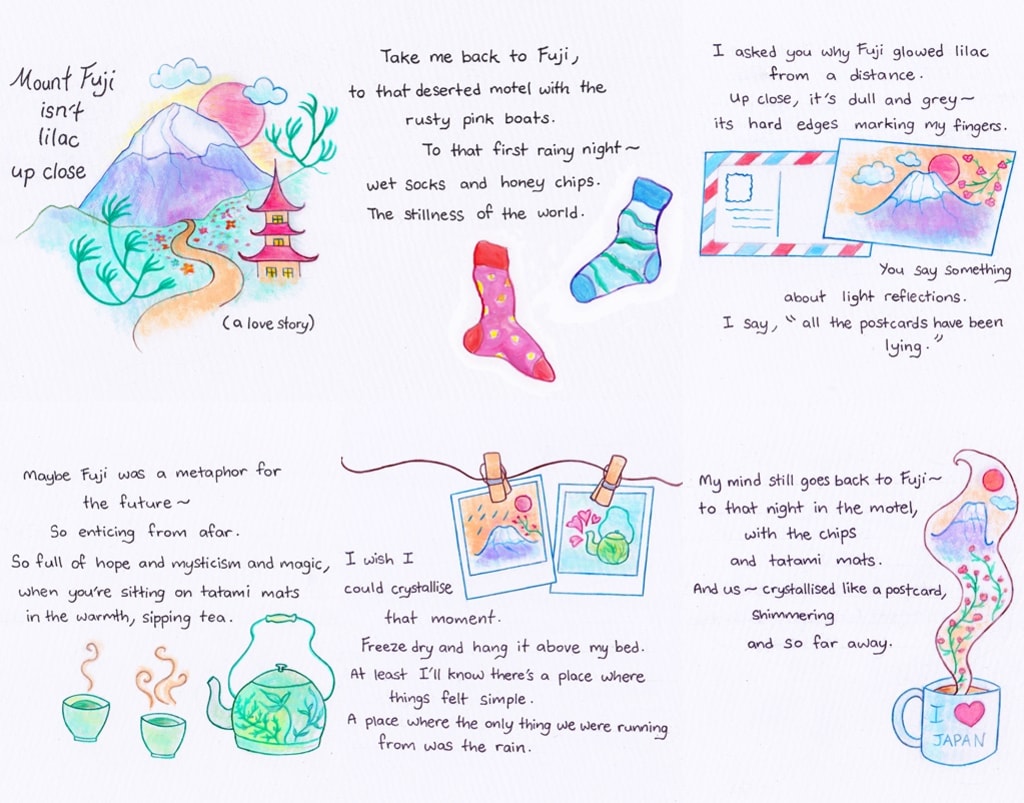 Mount Fuji
isn't
lilac
up close
(a love story)
Take me back to Fuji,
to that deserted motel with the
rusty pink boats.
To that first rainy night~
wet socks and honey chips.
The stillness of the world.
I asked you why Fuji glowed lilac
from a distance.
Up close, it's dull and grey~
its hard edges marking my fingers.
You say something
about light reflections.
I say, "all the postcards have been
lying."
Maybe Fuji was a metaphor for
the future~
So enticing from afar.
So full of hope and mysticism and magic,
when you're sitting on tatami mats
in the warmth, sipping tea.
I wish I
could crystallise
that moment.
Freeze dry and hang it above my bed.
At least I'll know there's a place where
things felt simple.
A place where the only thing we were running
from was the rain.
My mind still goes back to Fuji~
to that night in the motel,
with the chips
and tatami mats.
And us~ crystallised like a postcard,
Shimmering
and so far away.
I ♥
JAPAN